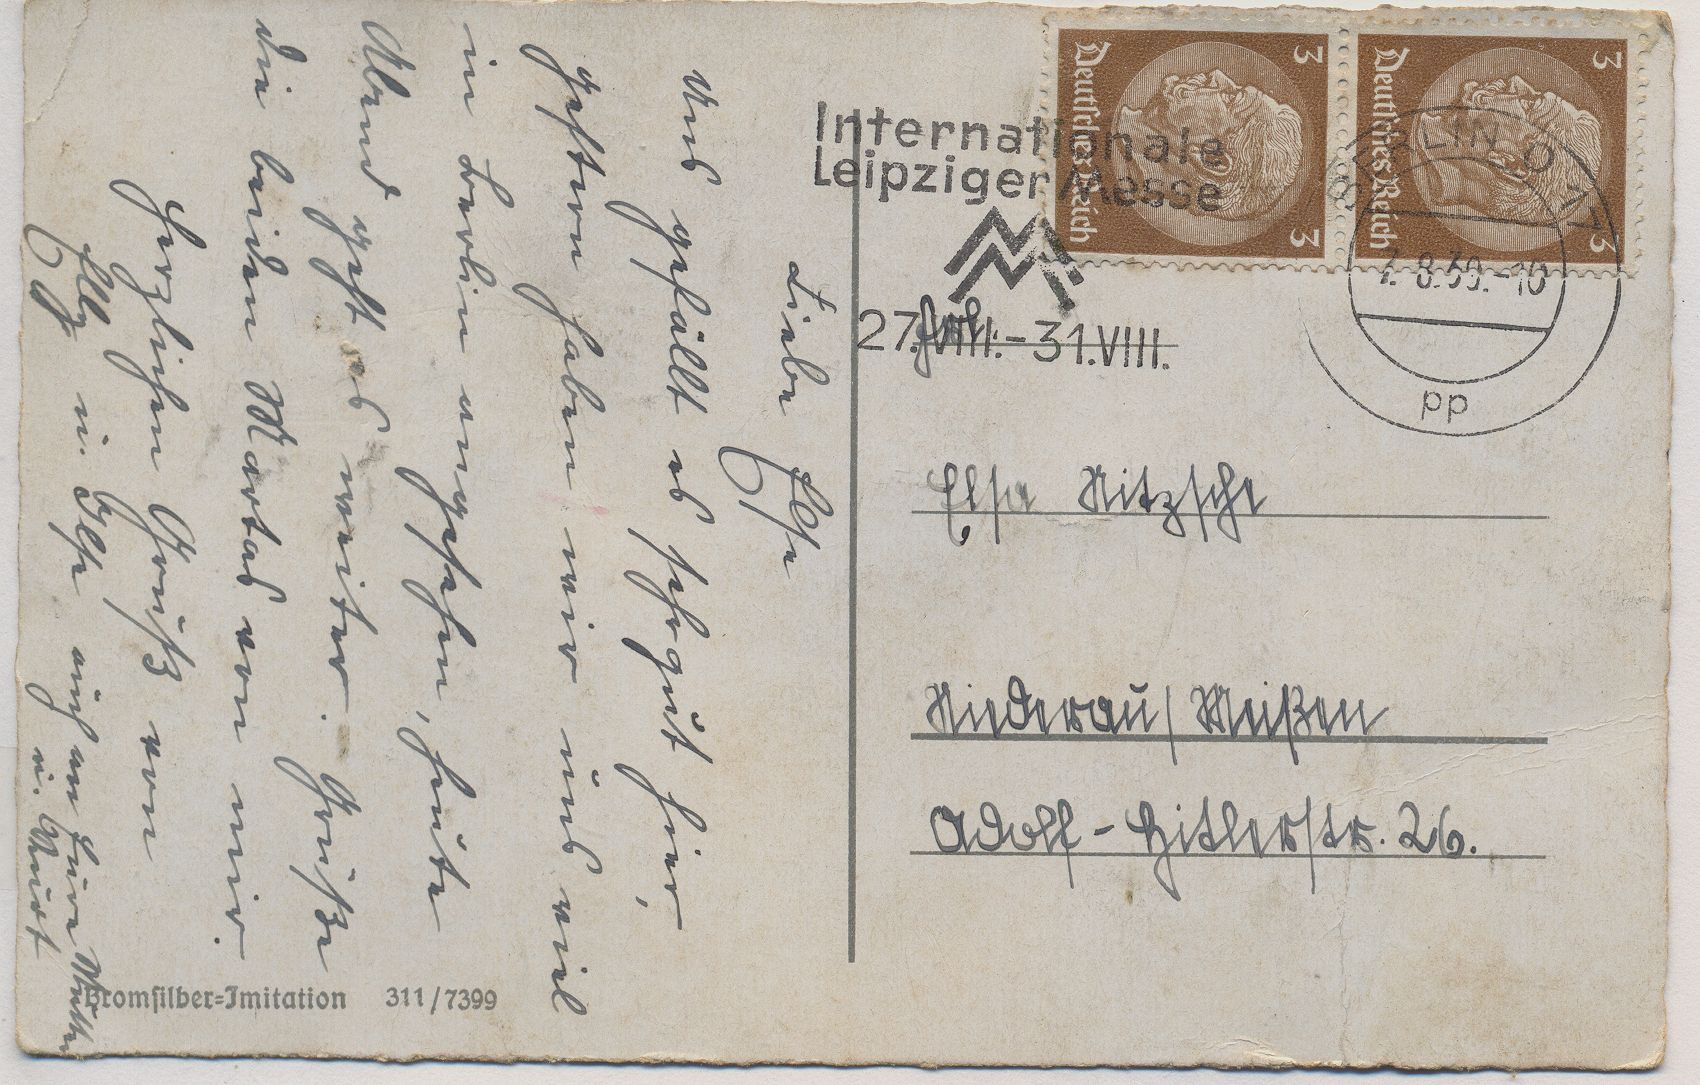 Liebe Else
uns gefällt es sehr gut hier,
gestern haben wir uns viel
in Berlin angesehen, heute
Abend geht es weiter. Grüße
die beiden Martas von mir.
Herzlichen Gruß von
Elly u. Ilse auch an Eure Mutter
u. Kurt
Bromsilber-Imitation 311/7399
Internationale
Leipziger Messe
27.VIII.-31.VIII.
Deutsches Reich 3 3
Deutsches Reich 3 3
BERLIN O 17
7.8.39.-10
pp
Elsa Nitzsche
Niederau/Meißen
Adolf-Hitlerstr. 26.